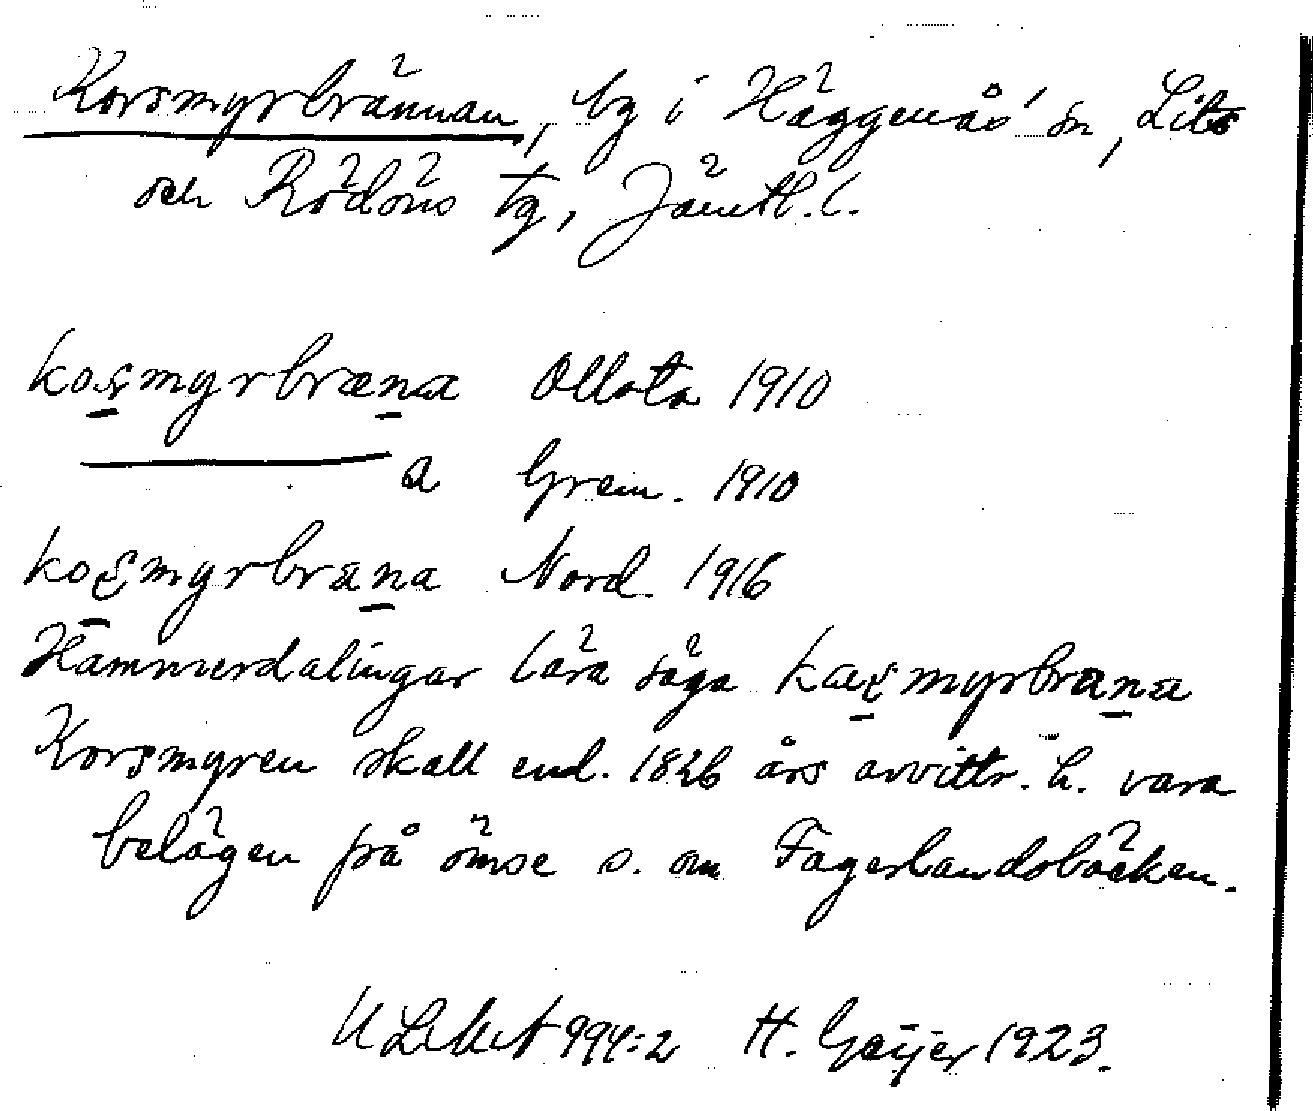 Korsmyrbrännan, by i Häggenås' sn, Lits
och Rödöns tg, Jämtl. l.
koʂmyrbræna Ollsta 1910
a Grem. 1910
koʂmyrbrana Nord. 1916
Hammerdalingar lära säga kaʂmyrbrana
Korsmyren skall enl. 1826 års avvittr. h. vara
belägen på ömse s. om Fagerlandsbäcken.
ULMA 994:2 H. Geijer 1923.